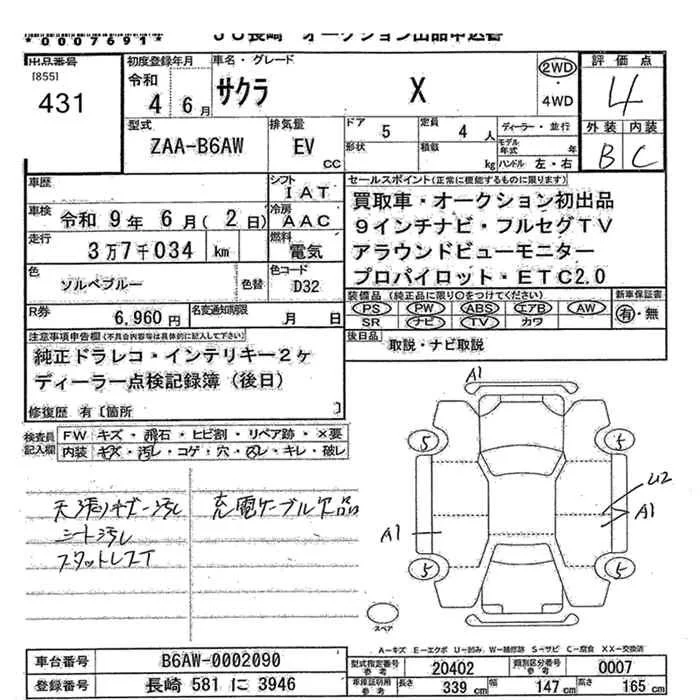 *0007691* JU長崎 オークション出品申込書
出品番号
[855]
431
初度登録年月
令和
4年6月
車名・グレード
サクラ X
2WD
・4WD
評価点
4
外装 内装
B C
型式
ZAA-B6AW
排気量
EV
CC
ドア 5
定員 4人
ディーラー・並行
形状
積載 kg
モデル年式 年
ハンドル 左・右
車歴
シフト
IAT
車検 令和9年6月(2日)
冷房
AAC
走行
3万7千034 km
燃料
電気
色
ソルベブルー
色替
色コード
D32
R券
6,960円
名変通知期限
月 日
セールスポイント(正常に機能するものに限ります)
買取車・オークション初出品
9インチナビ・フルセグTV
アラウンドビューモニター
プロパイロット・ETC2.0
装備品(純正品に限り○をつけてください) 新車保証書
PS PW ABS エアB AW
SR ナビ TV カワ
有・無
後日品 取説・ナビ取説
注意事項申告欄(不具合内容等は具体的に記入して下さい)
純正ドラレコ・インテリキー2ヶ
ディーラー点検記録簿(後日)
修復歴 有〔箇所 〕
検査員記入欄
FW キズ・飛石・ヒビ割・リペア跡・×要
内装 キズ・汚レ・コゲ・穴・凹レ・キレ・破レ
シート汚レ
スタットレスT
充電ケーブル欠品
A1
5 5
U2
A1 A1
5 5
スペア
A-キズ E-エクボ U-凹み W-補修跡 S-サビ C-腐食 XX-交換済
車台番号 B6AW-0002090
登録番号 長崎 581 に 3946
型式指定番号 参考 20402
類別区分番号 参考 0007
車庫証明用 参考 長さ 339 cm 幅 147 cm 高さ 165 cm